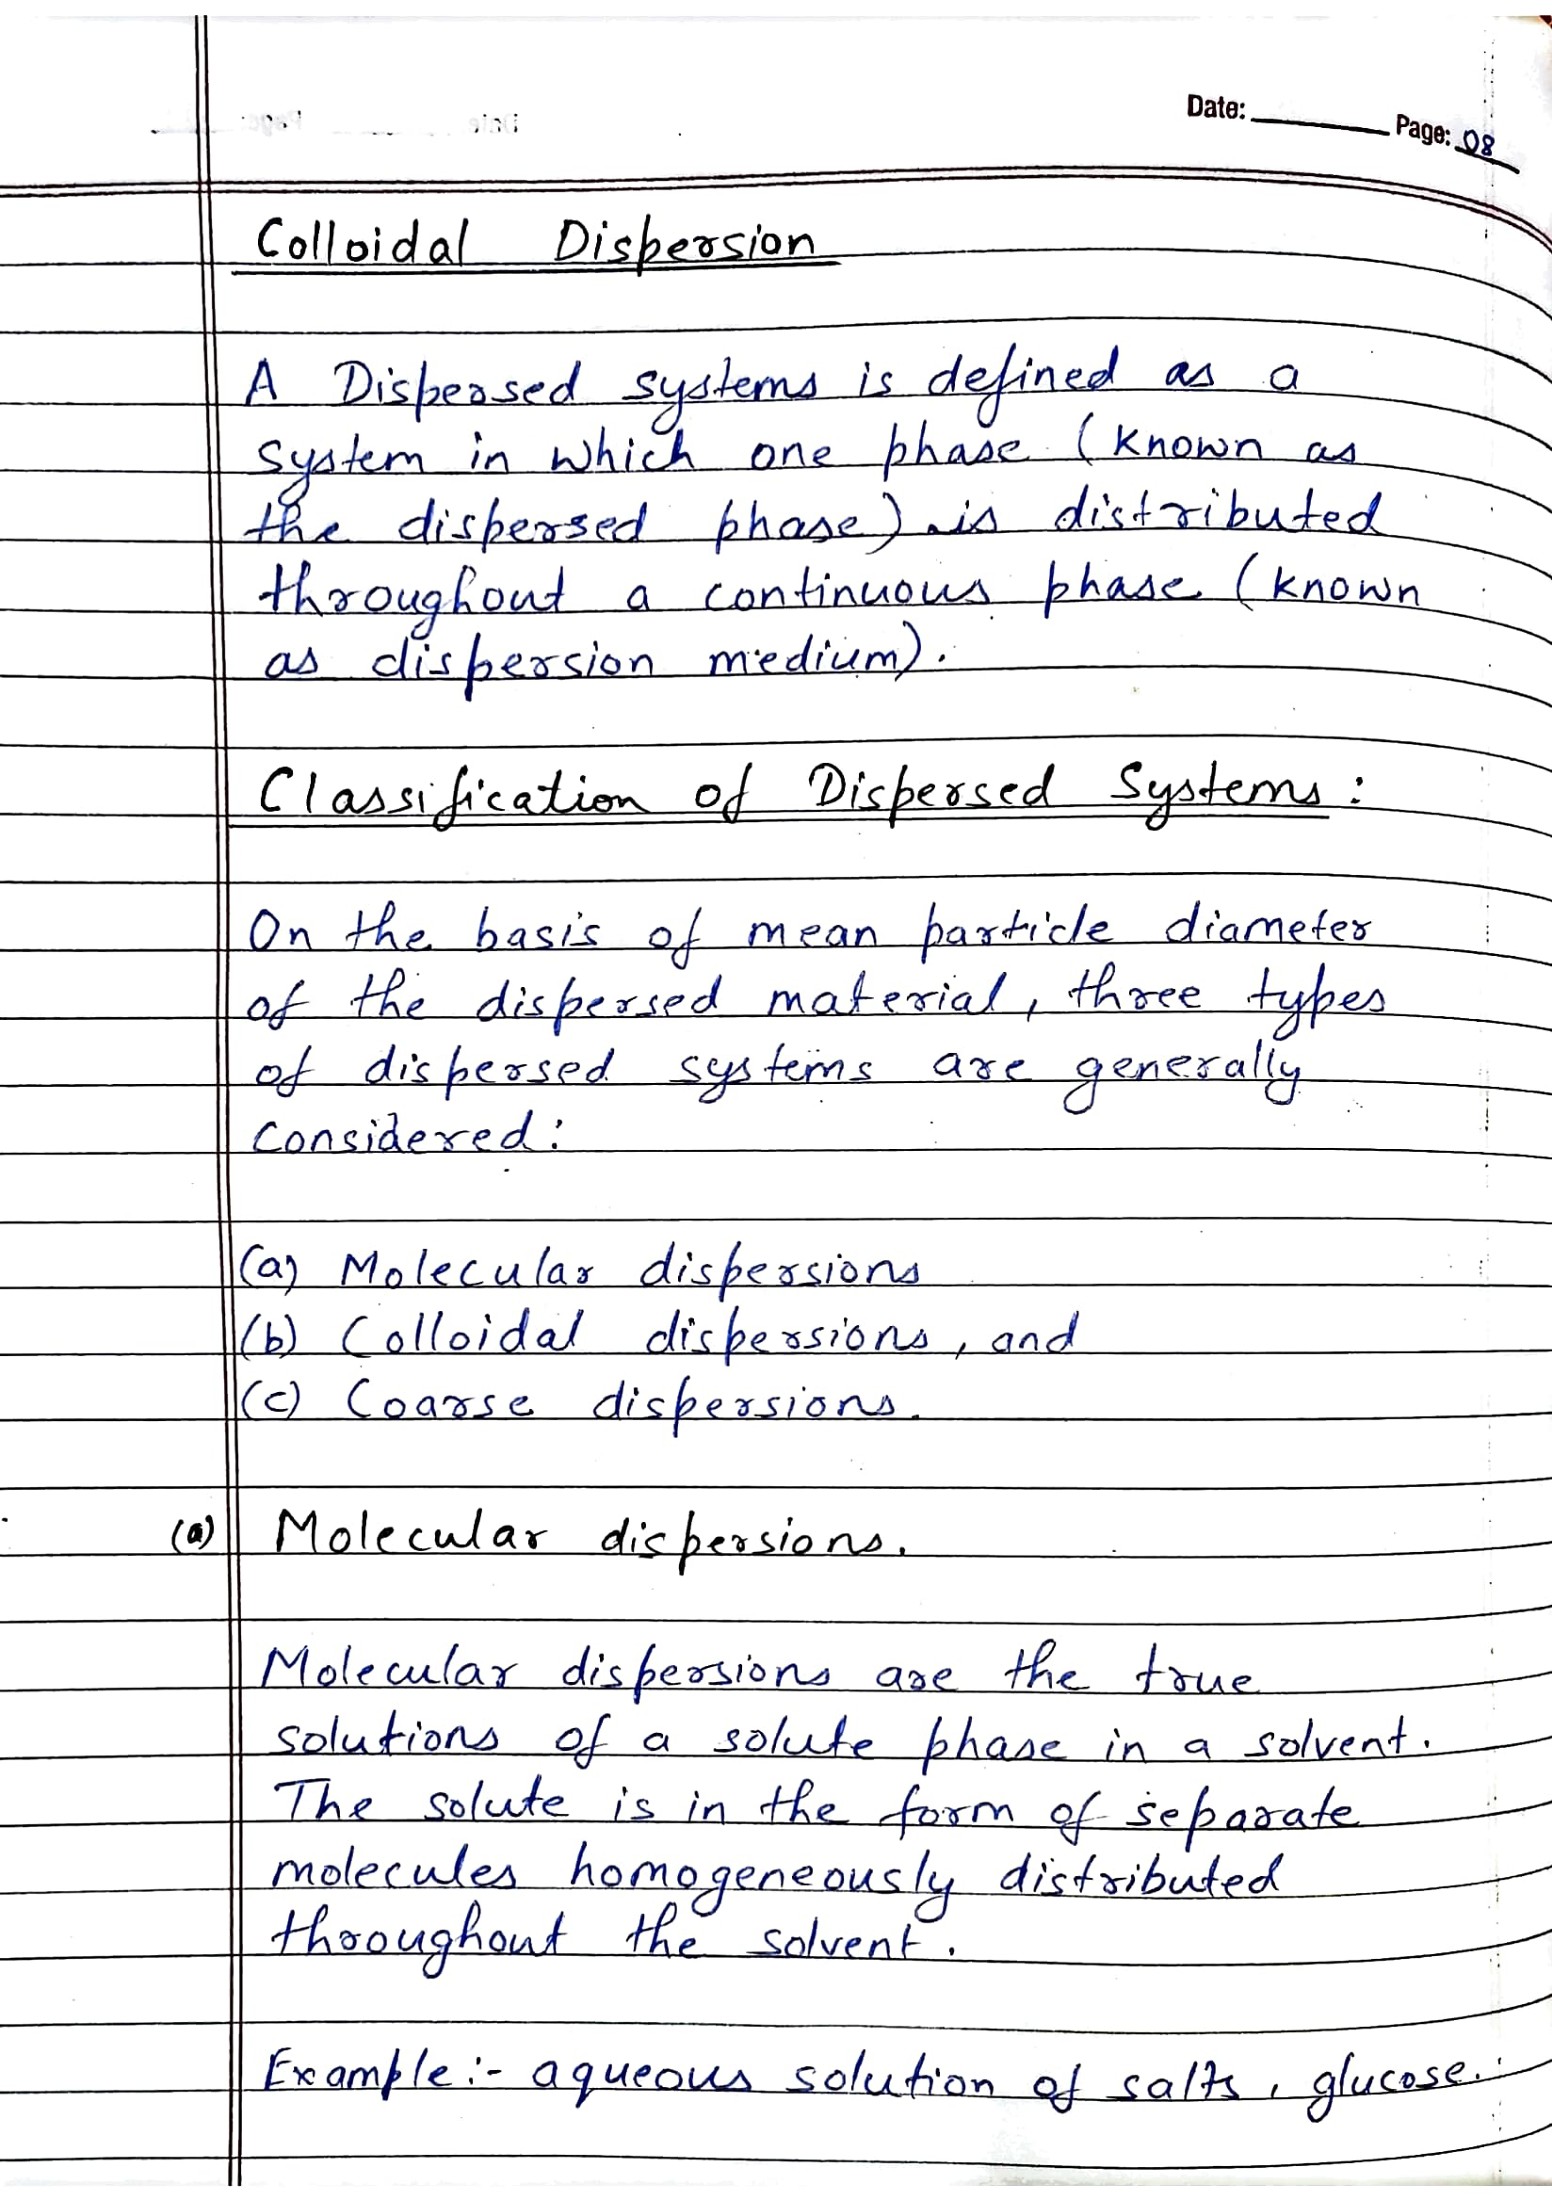 Date:
Page: 08
Colloidal Dispersion
A Dispersed systems is defined as a
system in which one phase (known as
the dispersed phase) is distributed
throughout a continuous phase (known
as dispersion medium).
Classification of Dispersed Systems:
On the basis of mean particle diameter
of the dispersed material, three types
of dispersed systems are generally
considered:
(a) Molecular dispersions
(b) Colloidal dispersions, and
(c) Coarse dispersions.
(a) Molecular dispersions.
Molecular dispersions are the true
solutions of a solute phase in a solvent.
The solute is in the form of separate
molecules homogeneously distributed
throughout the solvent.
Example:- aqueous solution of salts, glucose.